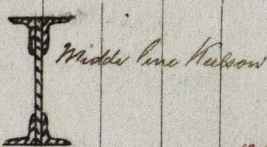 Middle line Keelson